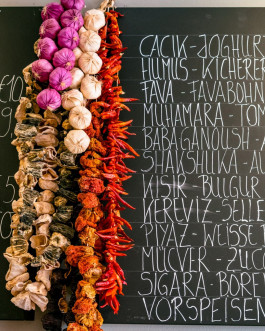 CACIK-JOGHURT
HUMUS-KICHERER
FAVA-FAVABOHN
MUHAMARA-TOM
BABAGANOUSH-A
SHAKSHUKA-AU
KISIR-BULGUR
KEREVIZ-SELLE
PIYAZ-WEISSE
MÜCVER-ZUCC
SIGARA-BÖRE
VORSPEISEN